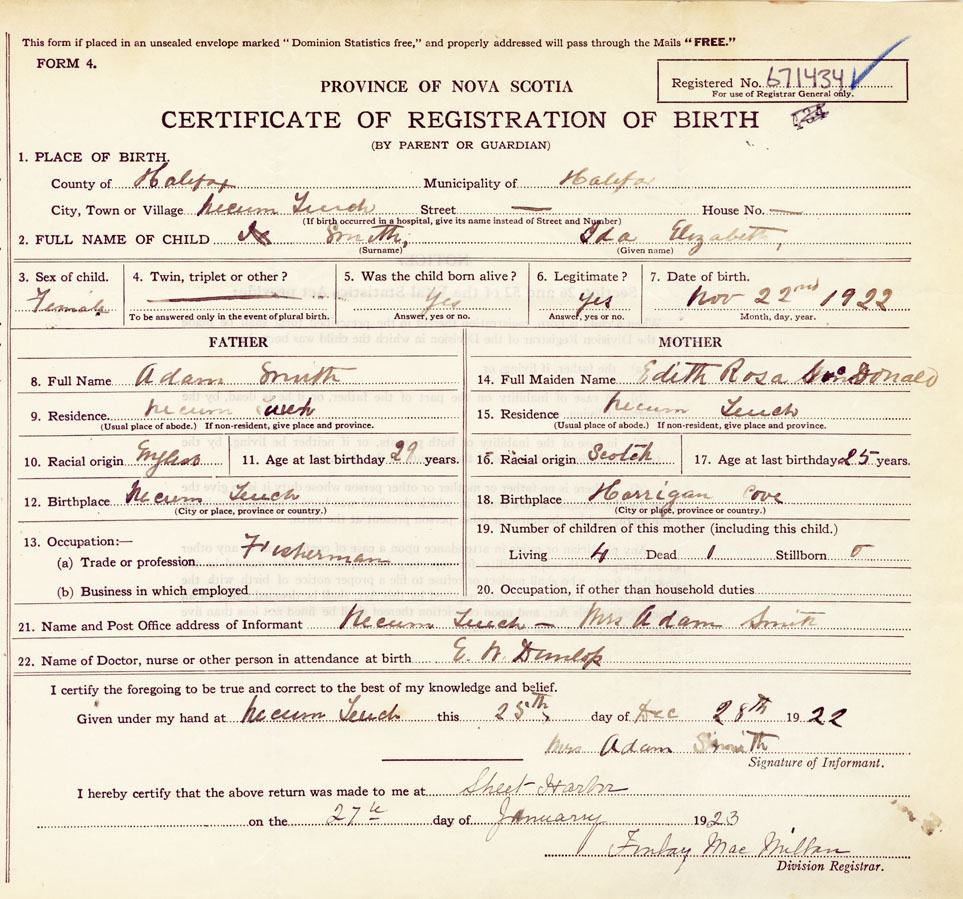 This form if placed in an unsealed envelope marked "Dominion Statistics free," and properly addressed will pass through the Mails "FREE."
FORM 4.
Registered No. 671434
For use of Registrar General only.
434
PROVINCE OF NOVA SCOTIA
CERTIFICATE OF REGISTRATION OF BIRTH
(BY PARENT OR GUARDIAN)
1. PLACE OF BIRTH.
County of Halifax Municipality of Halifax
City, Town or Village Necum Teuch Street — House No. —
(If birth occurred in a hospital, give its name instead of Street and Number)
2. FULL NAME OF CHILD Smith, Ida Elizabeth,
(Surname) (Given name)
3. Sex of child. 4. Twin, triplet or other? 5. Was the child born alive? 6. Legitimate? 7. Date of birth.
Female — Yes Yes Nov 22nd 1922
To be answered only in the event of plural birth. Answer, yes or no. Answer, yes or no. Month, day, year.
FATHER MOTHER
8. Full Name Adam Smith 14. Full Maiden Name Edith Rosa McDonald
9. Residence Necum Teuch 15. Residence Necum Teuch
(Usual place of abode.) If non-resident, give place and province. (Usual place of abode.) If non-resident, give place and province.
10. Racial origin English 11. Age at last birthday 29 years. 16. Racial origin Scotch 17. Age at last birthday 25 years.
12. Birthplace Necum Teuch 18. Birthplace Harrigan Cove
(City or place, province or country.) (City or place, province or country.)
13. Occupation:— 19. Number of children of this mother (including this child.)
(a) Trade or profession Fisherman Living 4 Dead 1 Stillborn 0
(b) Business in which employed 20. Occupation, if other than household duties
21. Name and Post Office address of Informant Necum Teuch — Mrs Adam Smith
22. Name of Doctor, nurse or other person in attendance at birth E. W. Dunlop
I certify the foregoing to be true and correct to the best of my knowledge and belief.
Given under my hand at Necum Teuch this 25th, day of Dec 28th 1922
Mrs Adam Smith
Signature of Informant.
I hereby certify that the above return was made to me at Sheet Harbor
on the 27th day of January 1923
Finlay Mac Millan
Division Registrar.